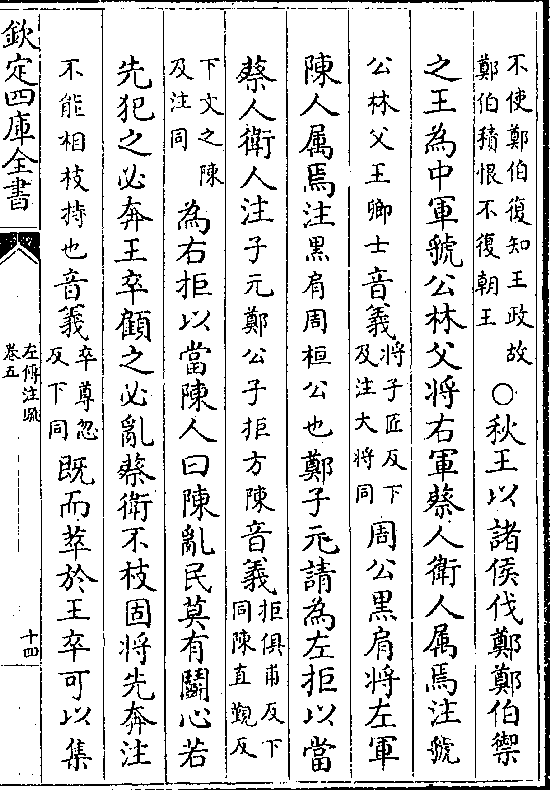 不使鄭伯復知王政故
鄭伯積恨不復朝王
○秋王以諸侯伐鄭鄭伯禦
之王為中軍虢公林父將右軍蔡人衛人属焉注虢
公林父王卿士音義
將子匠反下
及注大將同
周公黑肩將左軍
陳人属焉注黑肩周桓公也鄭子元請為左拒以當
蔡人衛人注子元鄭公子拒方陳音義
拒俱甫反下
同陳直覲反
下文之陳
及注同
為右拒以當陳人曰陳亂民莫有鬬心若
先犯之必奔王卒顧之必亂蔡衛不枝固將先奔注
不能相枝持也音義
卒尊忽
反下同
既而萃於王卒可以集
欽定四庫全書
左傳注疏
卷五
十四